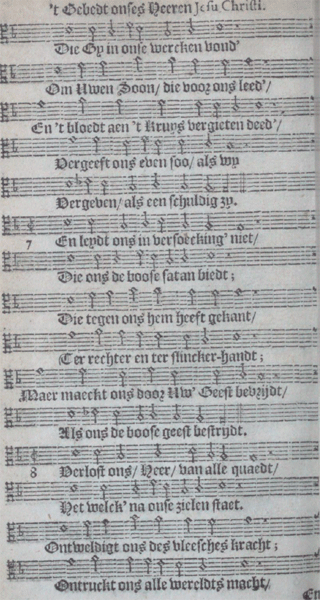 't Gebedt onses Heeren Jesu Christi.
Die Gy in onse wercken vond'
Om Uwen Soon/ die voor ons leed'/
En 't bloedt aen 't Kruys vergieten deed'/
Vergeeft ons even soo/ als wy
Vergeven/ als een schuldig zy.
7 En leydt ons in versoecking' niet/
Die ons de boose satan biedt;
Die tegen ons hem heeft gekant/
T'er rechter en ter slincker-handt;
Maer maeckt ons door Uw' Geest bevrijdt/
Als ons de boose geest bestrijdt.
8 Verlost ons/ Heer/ van alle quaedt/
Het welck' na onse zielen staet.
Ontweldigt ons des vleesches kracht;
Ontruckt ons alle wereldts macht/
En